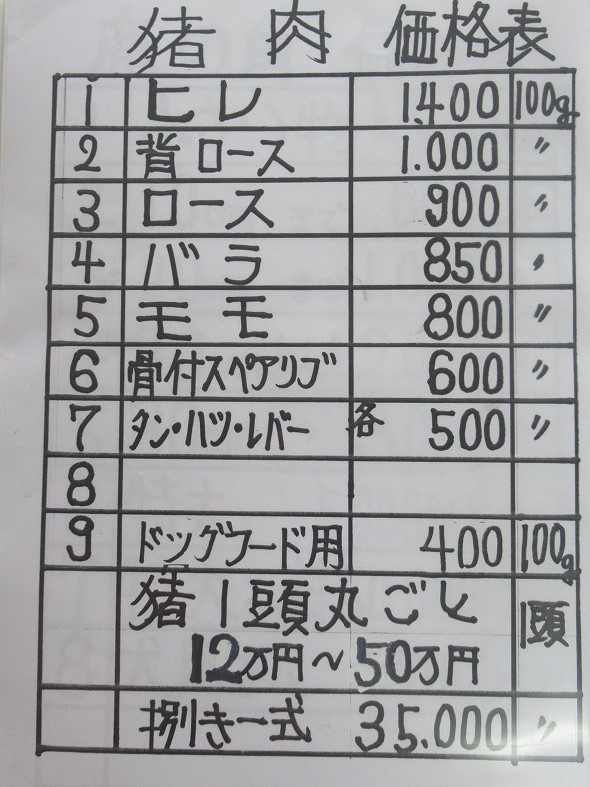 猪肉 価格表
1 ヒレ 1.400 100g
2 背ロース 1.000 〃
3 ロース 900 〃
4 バラ 850 〃
5 モモ 800 〃
6 骨付スペアリブ 600 〃
7 タン・ハツ・レバー 各 500 〃
8
9 ドッグフード用 400 100g
猪1頭丸ごと 1頭
12万円〜50万円
捌き一式 35.000 〃